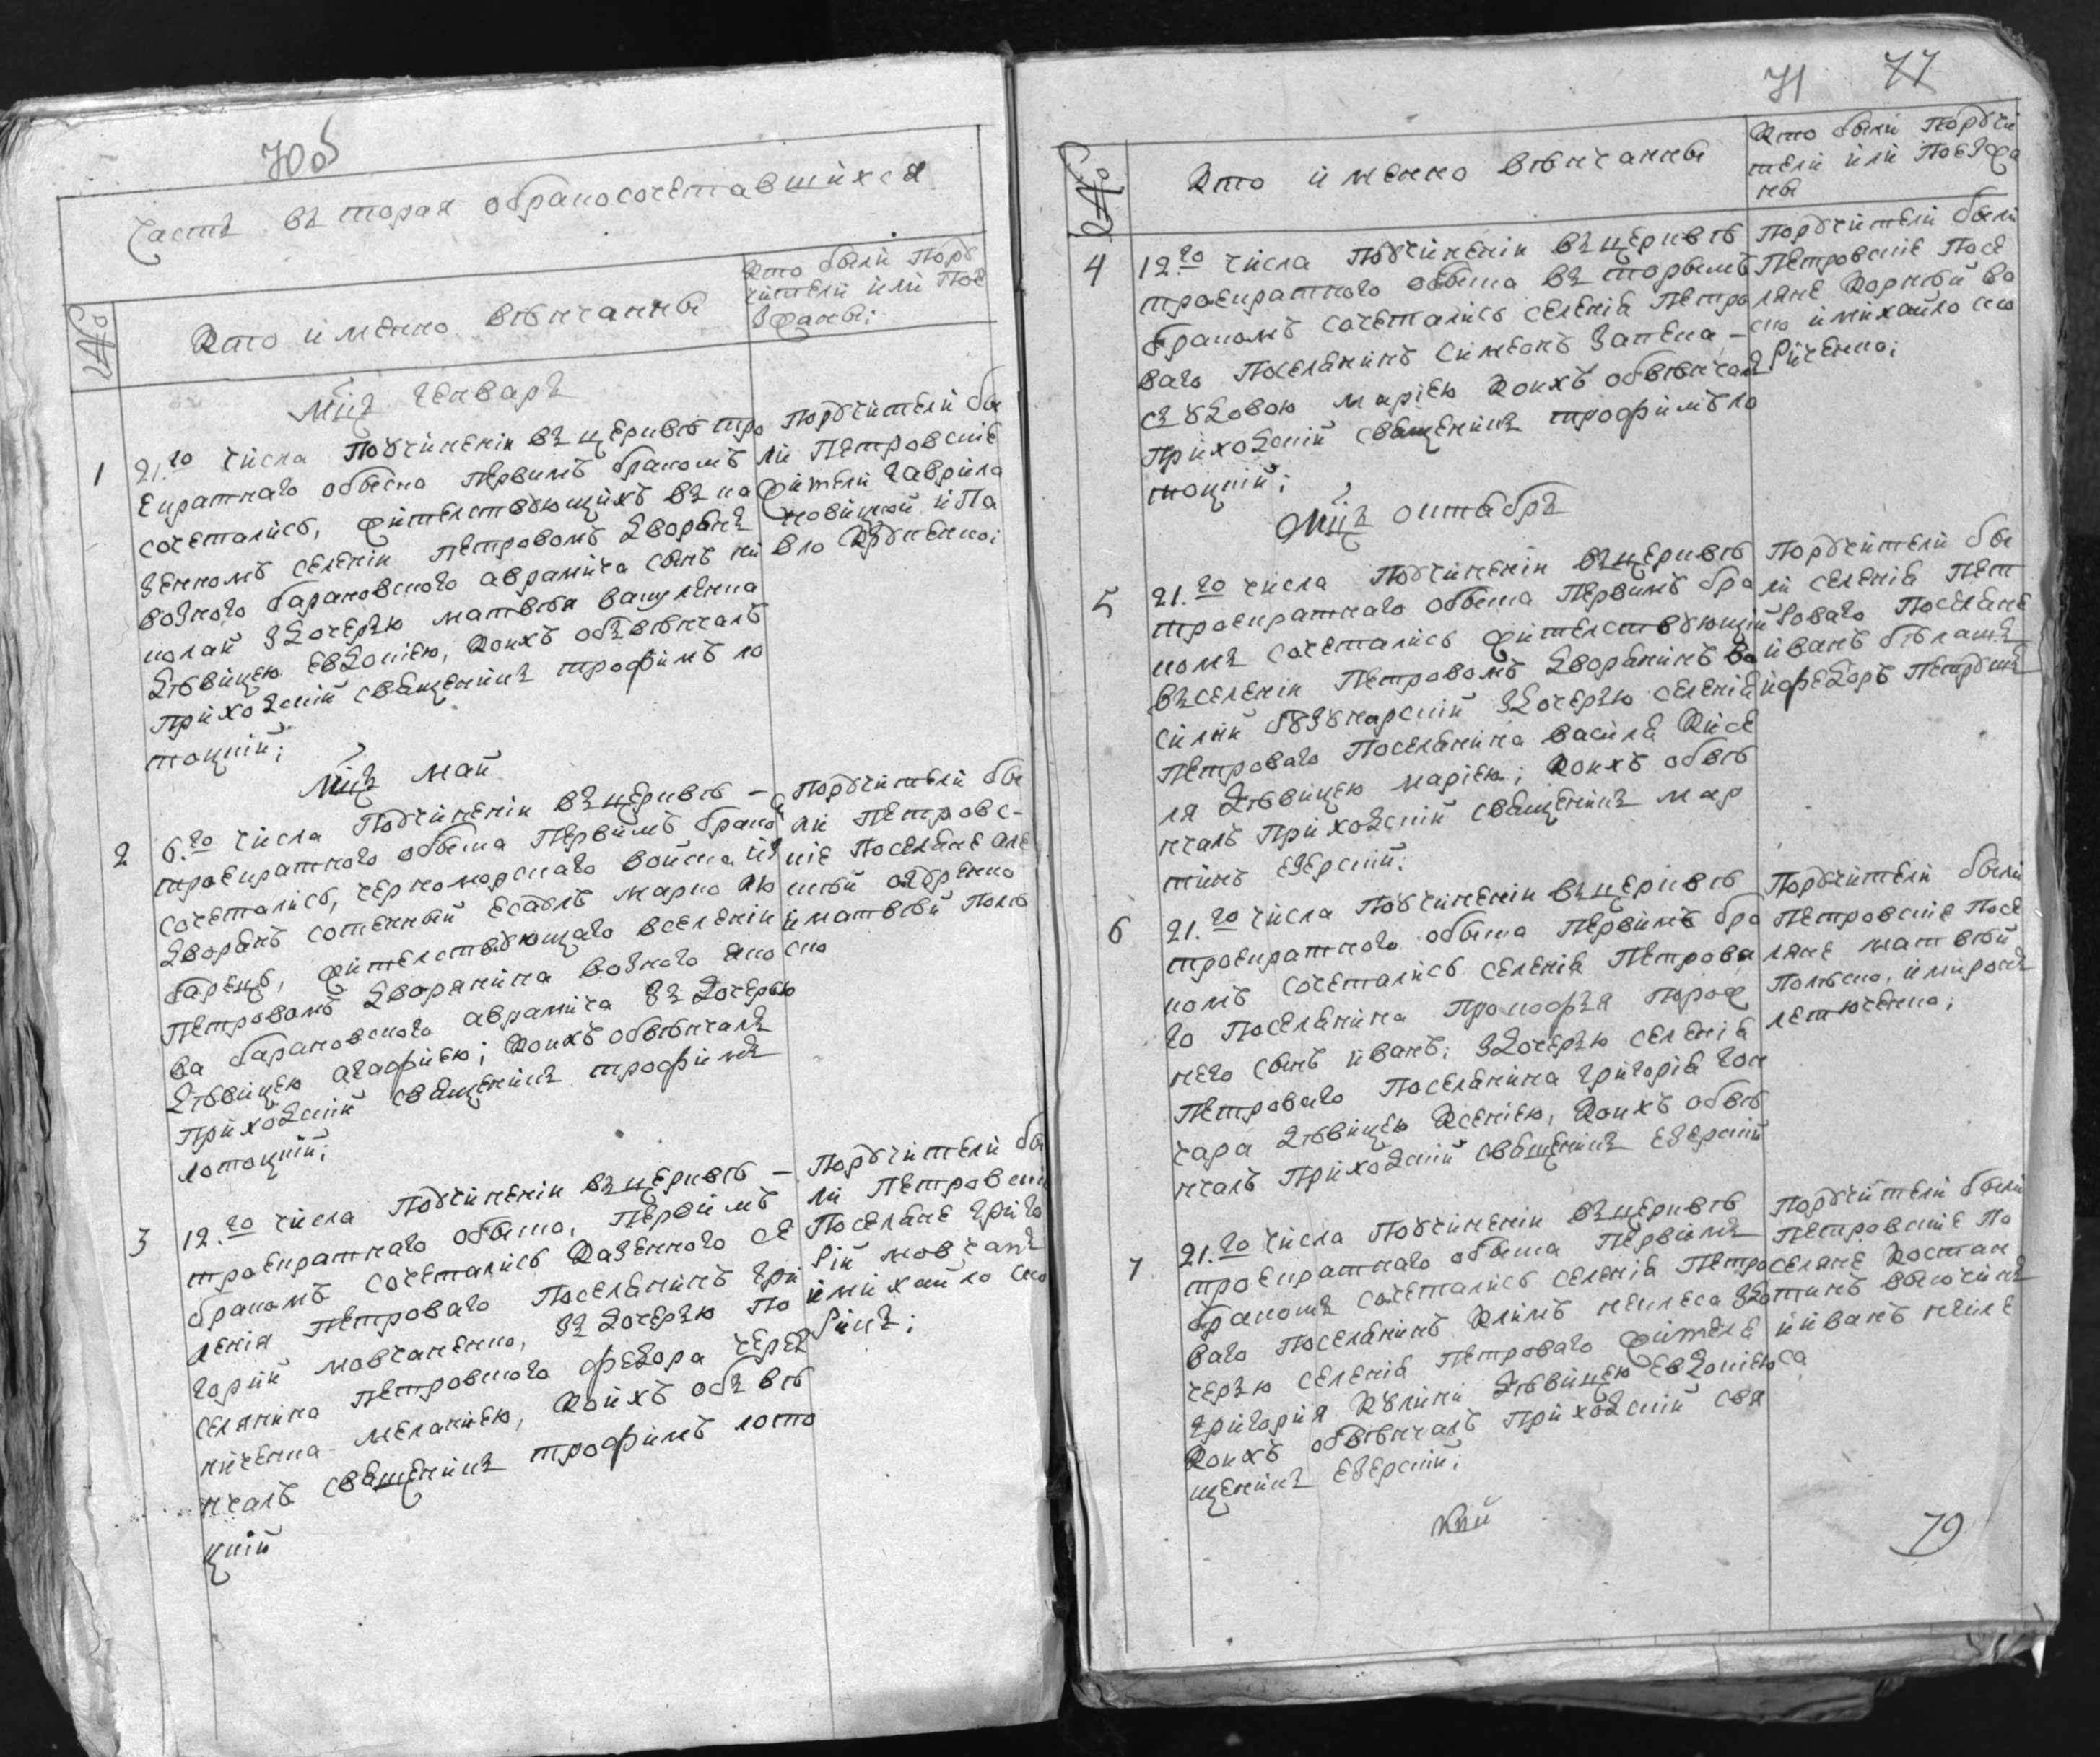 70об
Часть въторая обракосочетавшихся
№
Кто именно вѣнчанны
Кто были Пору
чители или Поѣ
зжаны:
Мцъ Генварь
1
21.го числа Поучиненіи въ церквѣ тро
екратнаго обыска Первимъ бракомъ
сочетались, жителствующихъ въ ка
зенномъ селенїи Петровомъ дворянъ
возного барановского аврамича сынъ ни
колай здочерью матвѣя ващенка
дѣвицею Евдокіею, коихъ объвѣнчалъ
приходскій священникъ трофимъ ло
тоцкій;
Поручители бы
ли Петровскіе
жители гаврило
новицкой и Па
вло Кудненко;
Мцъ май
2
6.го числа Поучиненіи въ церквѣ –
троекратного обыска Первимъ брако
сочетались, черноморскаго войска из
дворянъ сотенный есаулъ марко лю
барецъ, жителствующаго вселеніи
Петровомъ дворянина возного яко
ва барановского аврамича зъ дочерью
дѣвицею агафиею; коихъ обвѣнчалъ
приходскій священникъ трофимъ
лотоцкій;
Поручители бы
ли Петровс-
кіе Поселяне але
ксѣй
и матвѣй Поля
ско
3
12.го числа Поучиненіи въ церквѣ –
троекратнаго обыска, Первимъ
бракомъ сочетались казенного се
ленія Петроваго Поселянинъ гри
горий мовчаненко, зъ дочерью По
селянина Петровского федора черед
ниченка меланиею, коихъ объвѣ
нчалъ священникъ трофимъ лото
цкій
Поручители бы
ли Петровски
Поселяне григо
рій мовчанъ
и михайло ско
рикъ;
71 77
№
Кто именно вѣнчанны
Кто были Поручи
тели или Поезжа
ны
4
12.го числа Поучиненіи въ церквѣ
троекратного обыска въторымъ
бракомъ сочетались селенія Петро
ваго Поселянинъ Симеонъ Запека –
съ удовою мариею коихъ обвѣнчалъ
приходскій священникъ трофимъ ло
тоцкій;
Поручители были
Петровскіе Посе
ляне Корнѣй во
ско и михайло ско
риченко;
Мцъ октябрь
5
21.го числа Поучиненіи въ церквѣ
троекратнаго обыска Первимъ бра
комъ сочетались жителствующій
въселеніи Петровомъ дворянинъ ва
силий бузукарскій здочерью селенія
Петроваго Поселянина василя Кисе
ля дѣвицею мариею; коихъ обвѣ
нчалъ приходскій священникъ мар
тинъ езерскій:
Поручители бы
ли селенія Пет
роваго Поселяне
иванъ бѣлашъ
и федоръ Петрунъ
6
21.го числа Поучиненіи въ церквѣ
троекратного обыска Первимъ бра
комъ сочетались селенія Петрова
го Поселянина Прокофия Порож
него сынъ иванъ; здочерью селенія
Петроваго Поселянина григорія гон
чара дѣвицею Ксениею, коихъ обвѣ
нчалъ приходскій священникъ езерскій
Поручители были
Петровскіе Посе
ляне матвѣй
Полѣско, и миронъ
летюченко;
7
21.го числа Поучиненіи въ церквѣ
троекратнаго обыска Первимъ
бракомъ сочетались селенія Петро
ваго Поселянинъ Климъ неклеса здо
черью селенія Петроваго жителя
григория Кулини дѣвицею Евдокиею
коихъ обвѣнчалъ приходскій свя
щеникъ езерскій;
Поручители были
Петровскіе По
селяне костан
тинъ
и иванъ некле
са
79